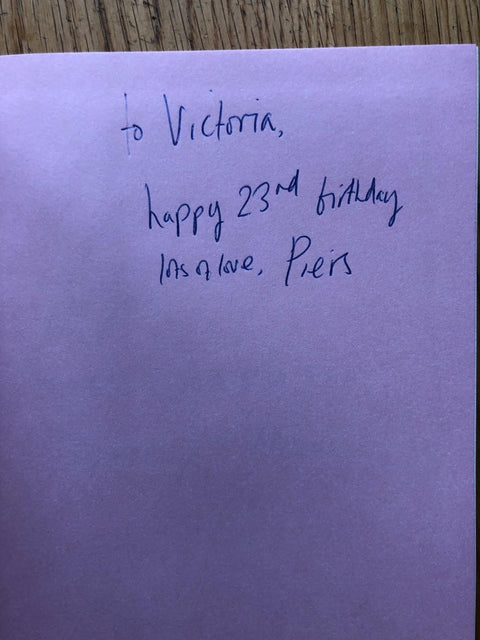 to Victoria,
happy 23rd birthday
lots of love, Piers